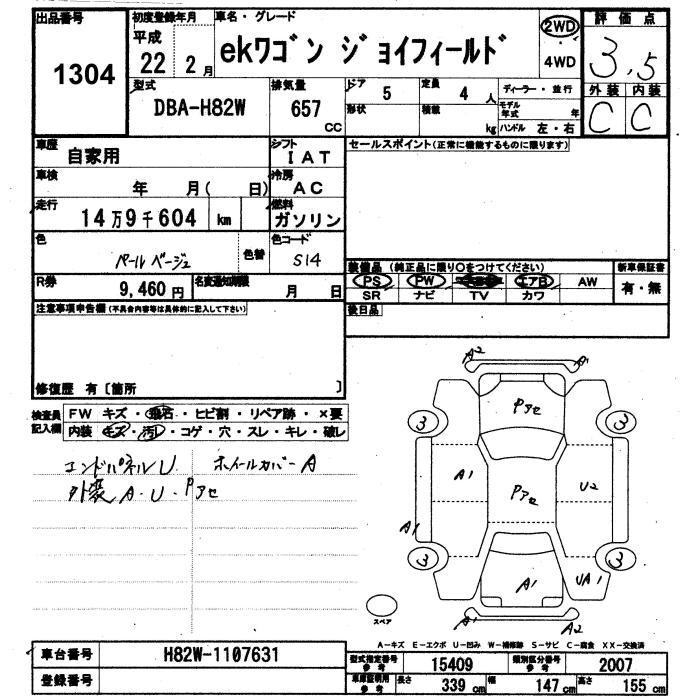 出品番号
1304
初度登録年月
平成
22 2月
車名・グレード
ekワゴン ジョイフィールド
2WD
・
4WD
評価点
3.5
外装 内装
C C
型式
DBA-H82W
排気量
657
CC
ドア
5
定員
4 人
形状
積載
kg
ディーラー・並行
モデル年式 年
ハンドル 左・右
車歴
自家用
シフト
IAT
車検
年 月( 日)
冷房
AC
走行
14万9千604 km
燃料
ガソリン
色
パールベージュ
色替
色コード
S14
R券
9,460円
名変通知期限
月 日
セールスポイント(正常に機能するものに限ります)
装備品(純正品に限り○をつけてください)
新車保証書
PS PW エアB AW
有・無
SR ナビ TV カワ
後日品
注意事項申告欄(不具合内容等は具体的に記入して下さい)
修復歴 有〔箇所 〕
検査員記入欄
FW キズ・飛石・ヒビ割・リペア跡・×要
内装 キズ・汚レ・コゲ・穴・スレ・キレ・破レ
エンドパネルU ホイールカバーA
外装 A・U・Pアセ
A2 A1
Pアセ
3 3
A1 Pアセ U2
A1
3 3
A1 UA1
スペア
A1 A2
A-キズ E-エクボ U-凹み W-補修跡 S-サビ C-腐食 XX-交換済
車台番号
H82W-1107631
登録番号
型式指定番号 参考
15409
類別区分番号 参考
2007
車庫証明用 参考
長さ 339 cm
幅 147 cm
高さ 155 cm